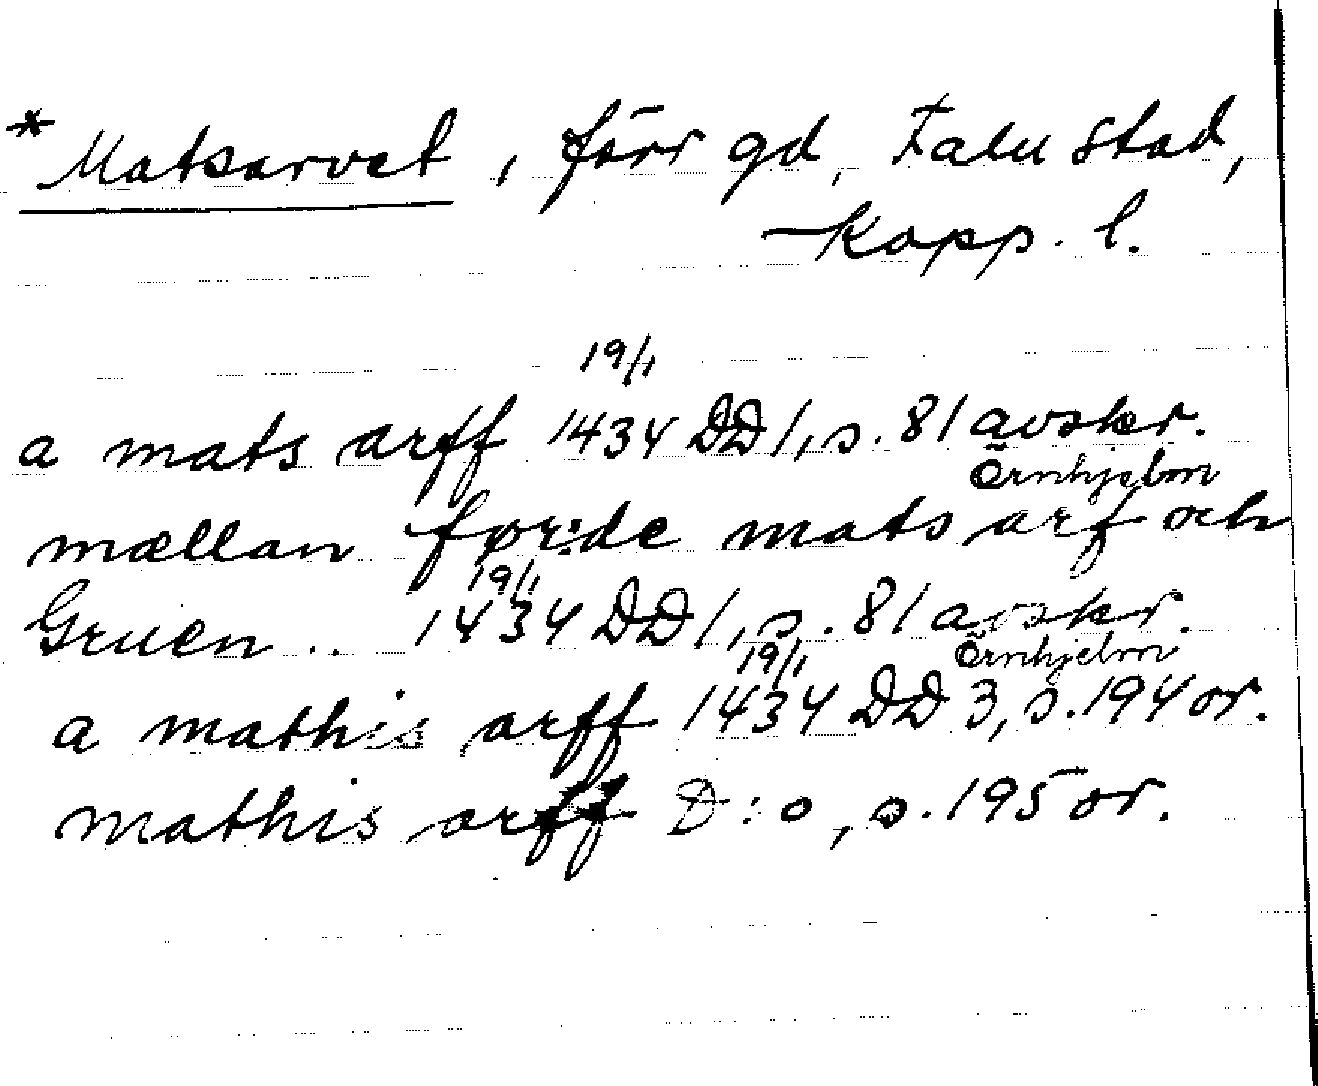 *Matsarvet, förr gd, Falu stad,
Kopp. l.
19/1
a mats arff 1434 DD 1, s. 81 avskr.
Örnhjelm
mællan for:de mats arf och
19/1
Gruen .. 1434 DD 1, s. 81 avskr.
19/1 Örnhjelm
a mathis arff 1434 DD 3, s. 194 or.
mathis arff D:o, s. 195 or.